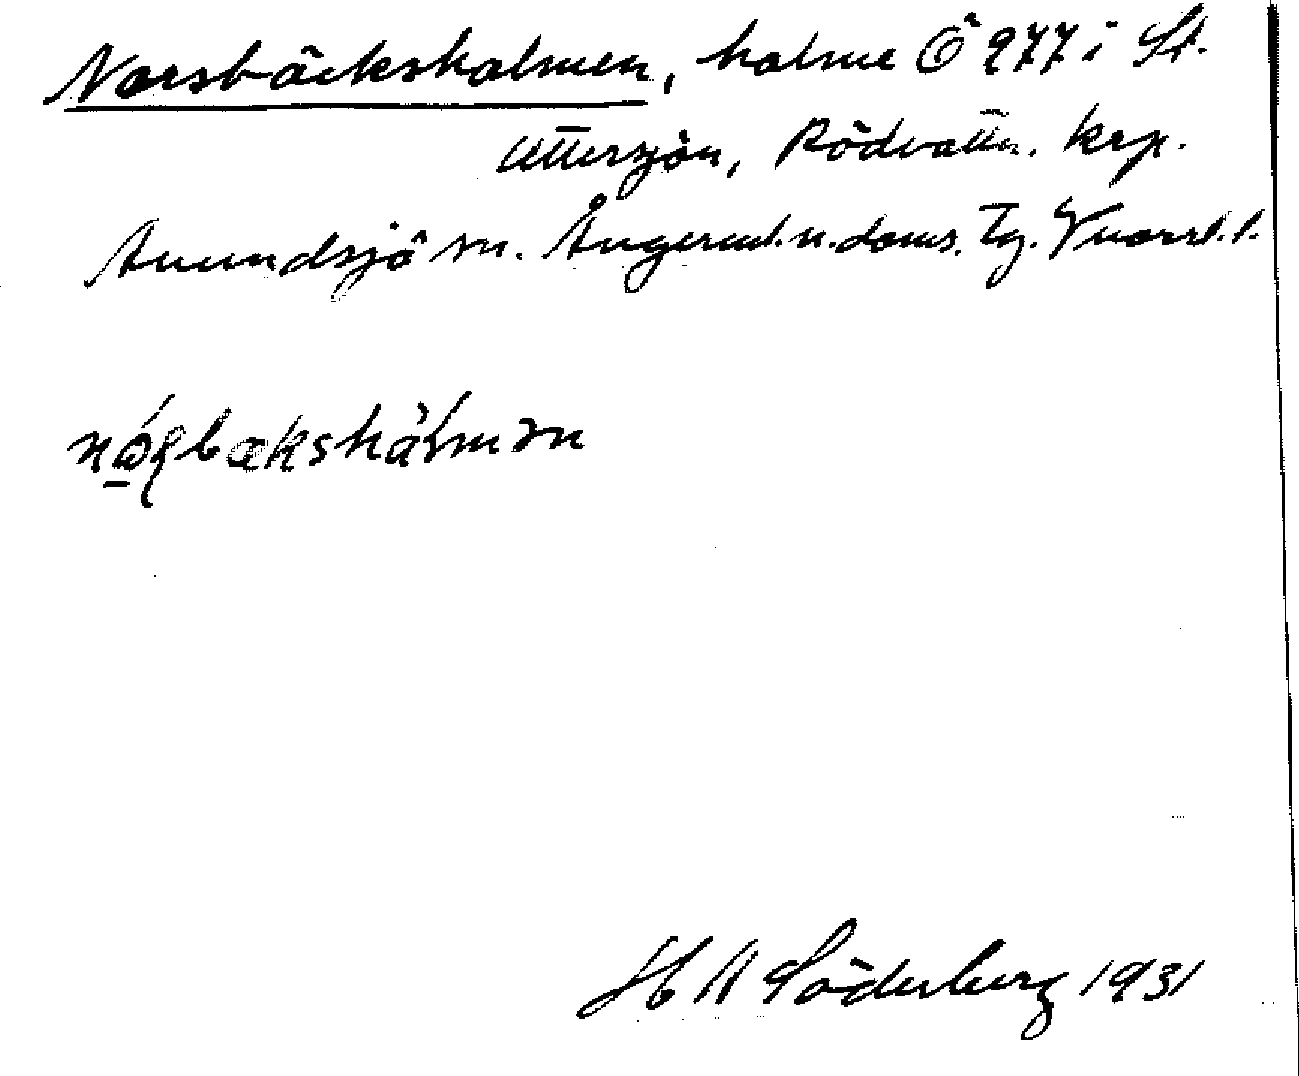 Norsbäcksholmen, holme Ö 977 i St.
Uttersjön, Rödvattn. krp.
Anundsjö sn. Ångerml. n. doms. Tg. Vuorsl. l.
nǿʂbækshål̀mən
H N Söderberg 1931